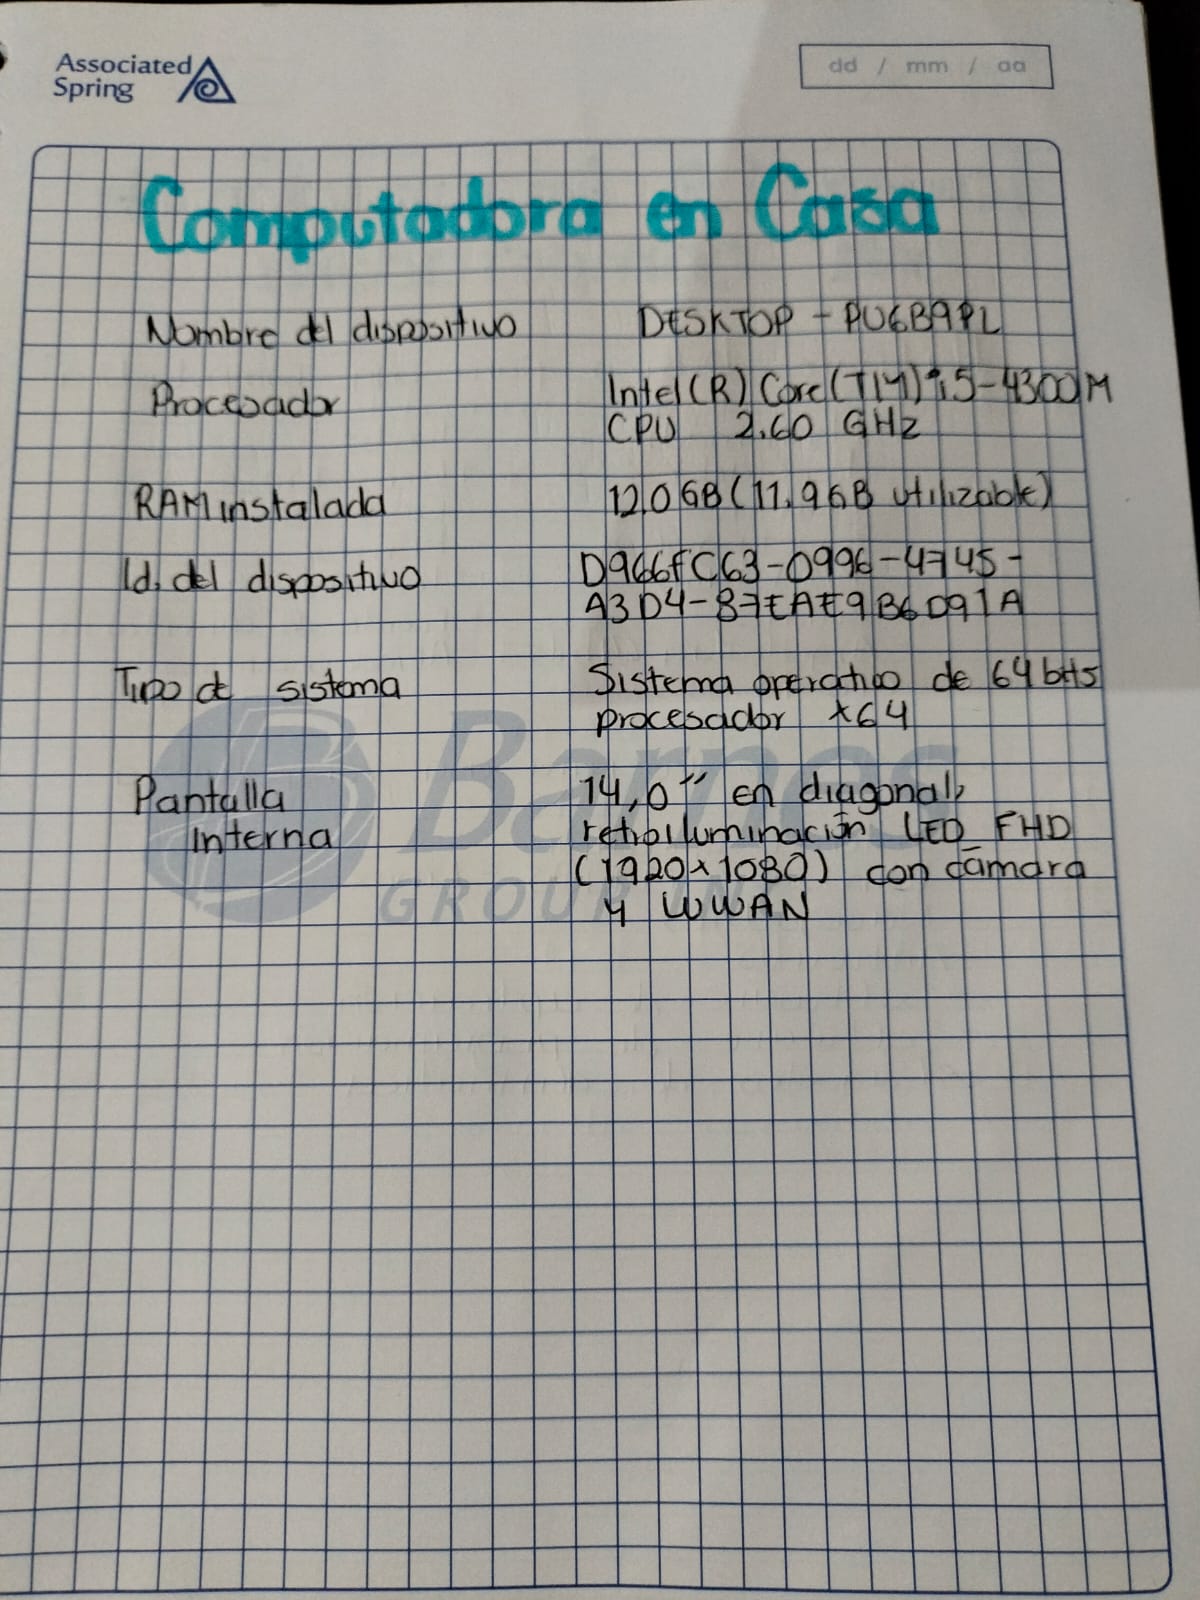 Associated
Spring
dd / mm / aa
Computadora en Casa
Nombre del dispositivo DESKTOP - PU6B9PL
Procesador Intel(R) Core(TM) i5-4300M
CPU 2.60 GHz
RAM instalada 12,0 GB (11,9 GB utilizable)
Id. del dispositivo D966FC63-0996-4745-
A3D4-87EAE9B6D91A
Tipo de sistema Sistema operativo de 64 bits
procesador x64
Pantalla 14,0" en diagonal,
Interna retroiluminación LED FHD
(1920x1080) con cámara
y WWAN
Barnes
GROUP INC